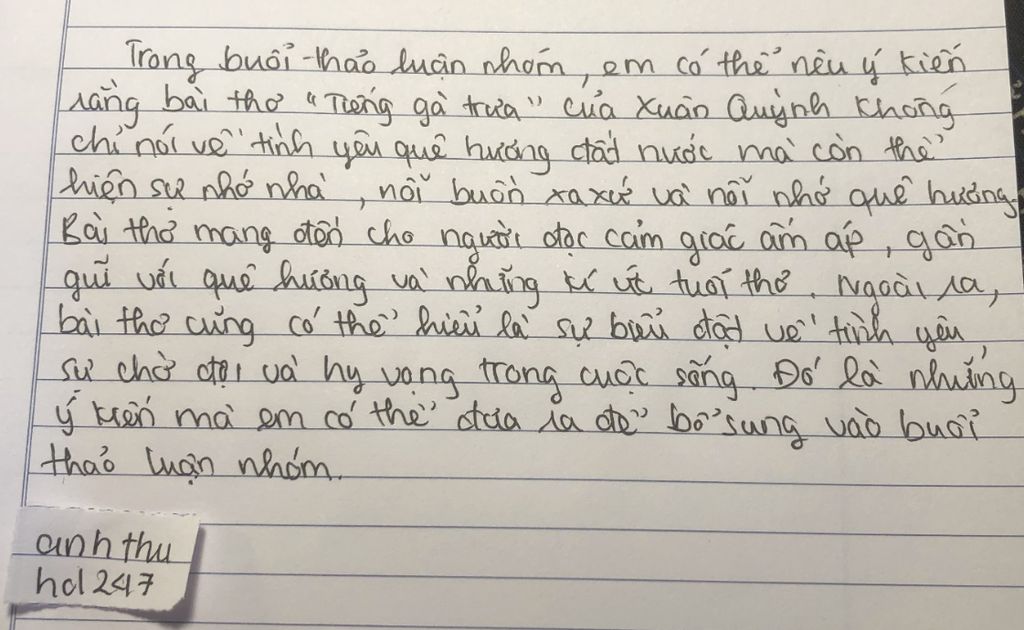 Trong buổi thảo luận nhóm, em có thể nêu ý kiến
rằng bài thơ "Tiếng gà trưa" của Xuân Quỳnh không
chỉ nói về tình yêu quê hương đất nước mà còn thể
hiện sự nhớ nhà, nỗi buồn xa xứ và nỗi nhớ quê hương.
Bài thơ mang đến cho người đọc cảm giác ấm áp, gần
gũi với quê hương và những kí ức tuổi thơ. Ngoài ra,
bài thơ cũng có thể hiểu là sự biểu đạt về tình yêu,
sự chờ đợi và hy vọng trong cuộc sống. Đó là những
ý kiến mà em có thể đưa ra để bổ sung vào buổi
thảo luận nhóm.
anh thu
hd247